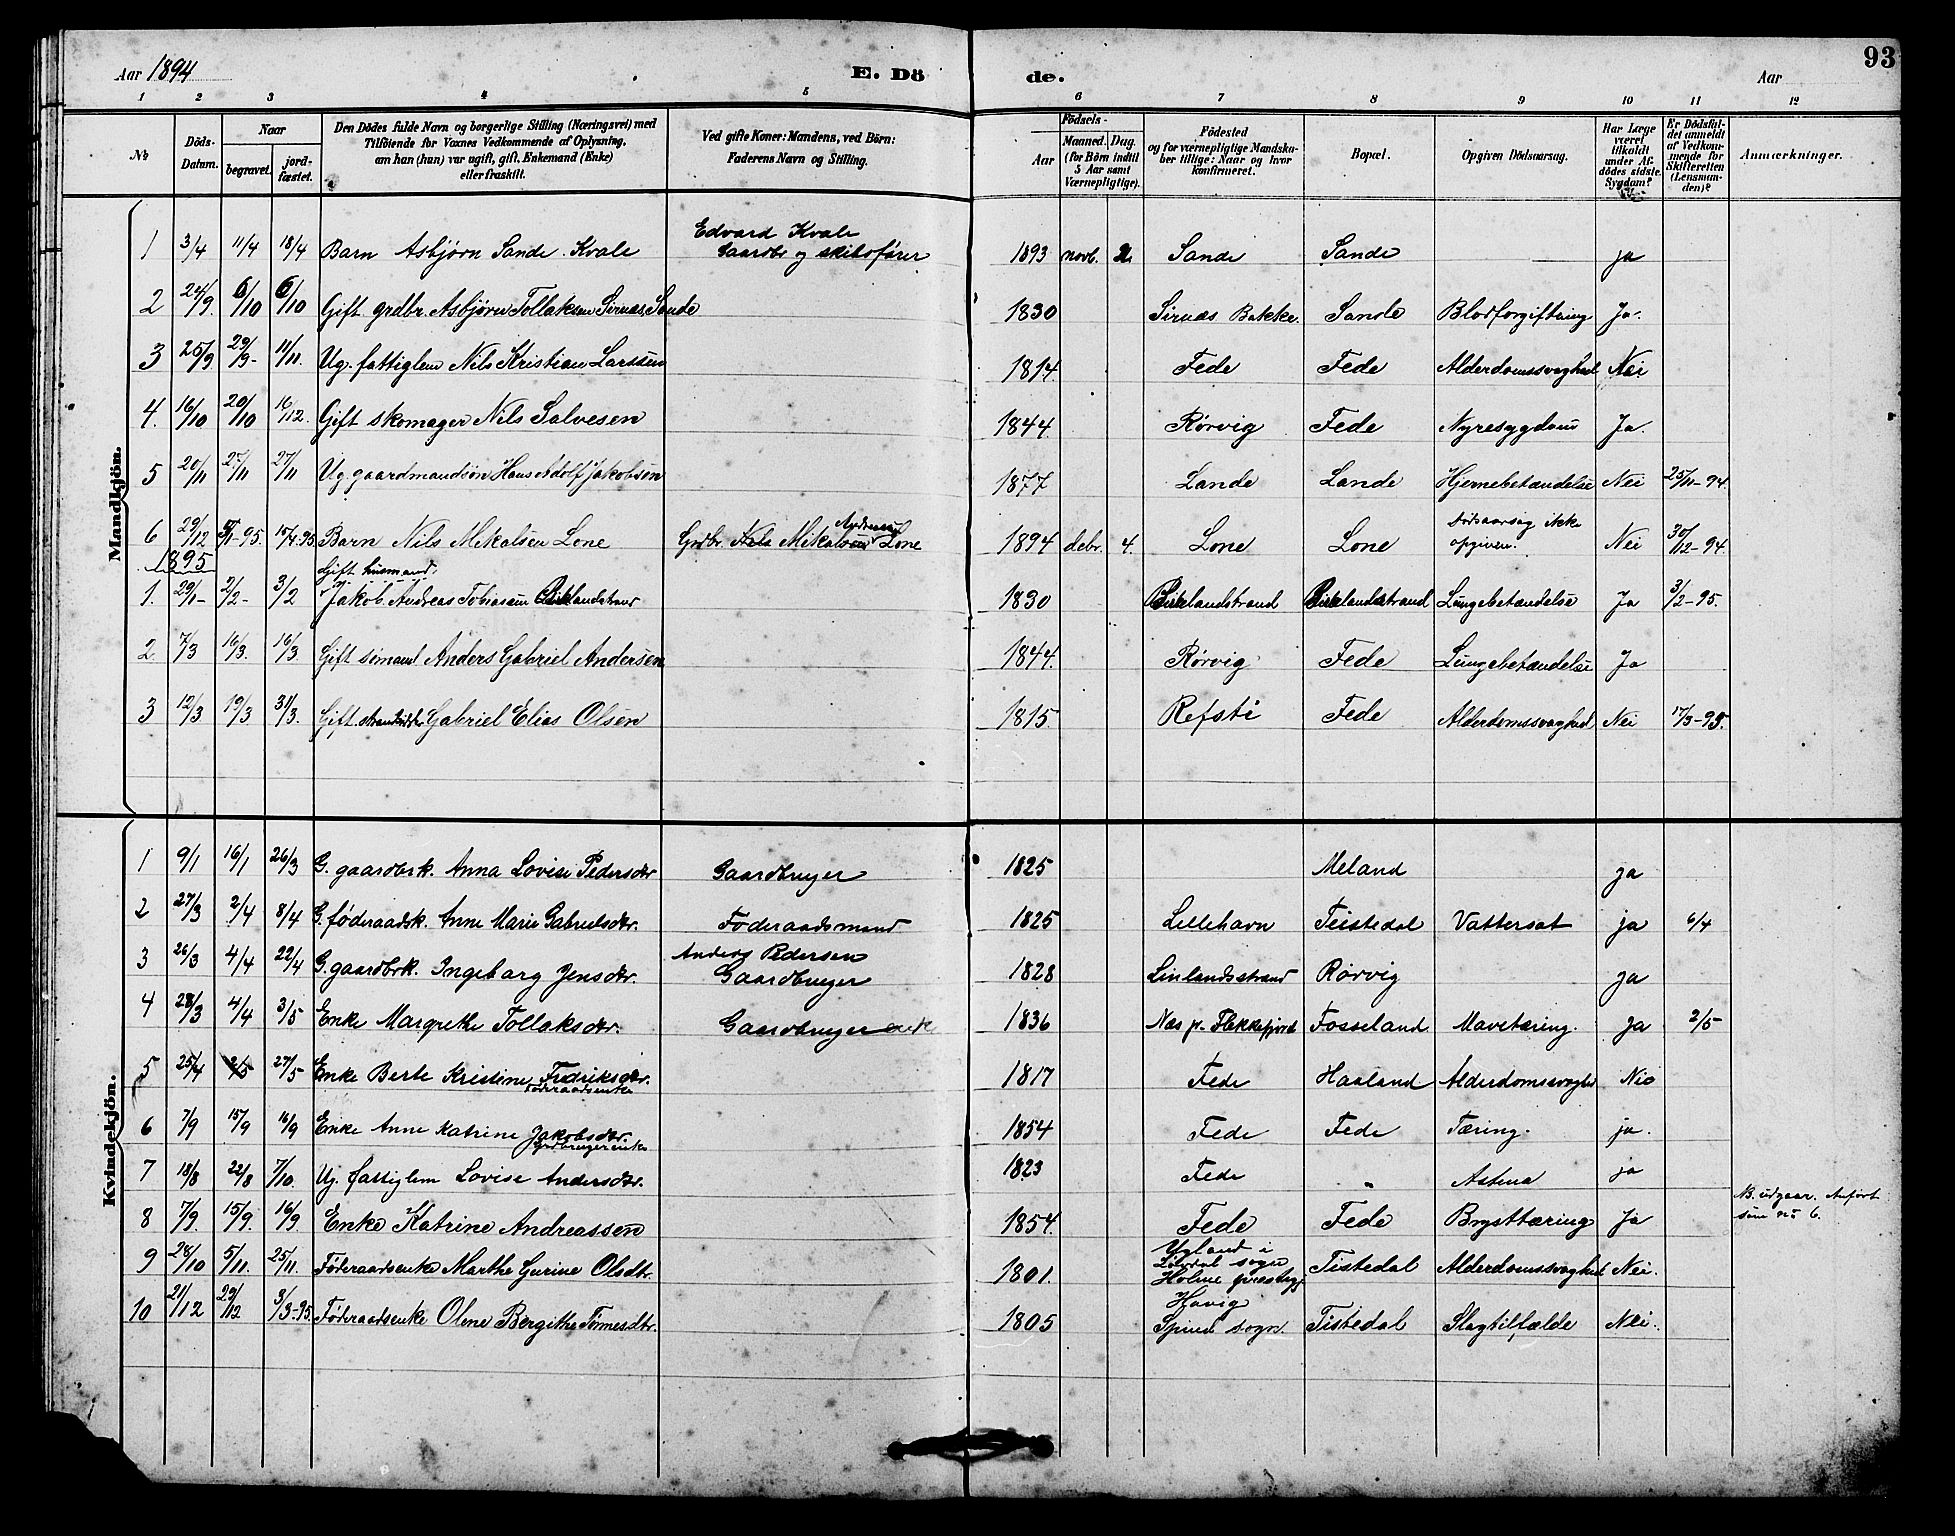 Aar 1894
E. Dö de.
Aar
93
1 2 3 4 5 6 7 8 9 10 11 12
No
Döds-Datum.
Naar
begravet.
jord-fæstet.
Den Dödes fulde Navn og borgerlige Stilling (Næringsvei) med
Tilföiende for Voxnes Vedkommende af Oplysning,
om han (hun) var ugift, gift, Enkemand (Enke)
eller fraskilt.
Ved gifte Koner: Mandens, ved Börn:
Faderens Navn og Stilling.
Födsels-
Aar
Maaned. Dag.
(for Börn indtil
5 Aar samt
Værnepligtige).
Födested
og for værnepligtige Mandska-
ber tillige: Naar og hvor
konfirmeret.
Bopæl.
Opgiven Dödsaarsag.
Har Læge
været
tilkaldt
under Af-
dödes sidste
Sygdom?
Er Dödsfal-
det anmeldt
af Vedkom-
mende for
Skifteretten
(Lensman-
den)?
Anmærkninger.
Mandkjön.
1 3/4 11/4 18/4 Barn Asbjørn Sande Kvale Edvard Kvale Gaardbr og skibsfører 1893 novb. 2 Sande Sande ja
2 24/9. 6/10 6/10 Gift grdbr. Asbjørn Tollaksen Sirnæs, Sande 1830 Sirnæs Bakke. Sande Blodforgiftning Ja.
3 25/9 29/9- 11/11. Ug. fattiglem Nils Kristian Larssen 1814 Fede Fede Alderdomssvaghed Nei
4. 16/10 20/10 16/12. Gift skomager Nils Salvesen 1844. Rørvig Fede Nyresygdom Ja.
5 20/11 27/11 27/11 Ug. gaardmandsøn Hans Adolf Jakobsen 1877 Lande Lande Hjernebetændelse Nei 25/11-94.
6 29/12 5/1-95. 15/4.95 Barn Nils Mikalsen Lone Grdbr. Nils Mikalsen Andreas Lone 1894 debr. 4. Lone Lone Dødsaarsag ikke opgiven. Nei 30/12-94.
1895
Gift husmand.
1. 29/1- 2/2- 3/2 Jakob Andreas Tobiassen Birklandstrand 1830 Birklandstrand Birklandstrand Lungebetændelse Ja 3/2-95.
2 7/3 16/3. 16/3. Gift sømand Anders Gabriel Andersen 1844. Rørvig Fede Lungebetændelse Ja
3 12/3 19/3 31/3. Gift strandsidder Gabriel Elias Olsen 1815. Refsti Fede Alderdomssvaghed Nei 17/3-95.
Kvindekjön.
1 9/1 16/1 26/3 G. gaardbrk. Anna Lovise Pedersdtr Gaardbruger 1825 Meland ja
2 27/3 2/4 8/4 G. føderaadsk. Anne Marie Gabrielsdtr. Føderaadsmand 1825 Lillehavn Teistedal Vattersot ja 6/4
3 26/3 4/4 22/4 G. gaardbrk. Ingeborg Jensdtr. Anders Pedersen Gaardbruger 1828 Linlandsstrand Rørvig ja
4 28/3 4/4 3/5 Enke Margrethe Tollaksdtr. Gaardbruger enk 1836 Næs pr. Flekkefjord Fosseland Mavetæring. ja 2/5
5 25/4 2/5 27/5 Enke Berte Kristine Fredriksdtr. føderaadsenke 1817 Fede Haaland Alderdomssvaghed Nei
6 7/9 15/9 16/9 Enke Anne Katrine Jakobsdtr. grdbrugerenke 1854 Fede Fede Tæring. ja.
7 18/8 22/8 7/10. Ug. fattiglem Lovise Andersdtr. 1823 Fede " Astma ja
8 7/9. 15/9. 16/9. Enke Katrine Andreassen 1854. Fede Fede Brysttæring Ja NB. udgaar. Anført som no 6.
9 28/10 5/11. 25/11. Føderaadsenke Marthe Gurine Olsdtr. 1801. Ugland i sogn Holme præstegj Tistedal Alderdomssvaghed Nei.
10 21/12 29/12 3/3-95. Føderaadsenke Olene Bergithe Tønnesdtr. 1805 Havig Spind sogn. Tistedal Slagtilfælde Nei.